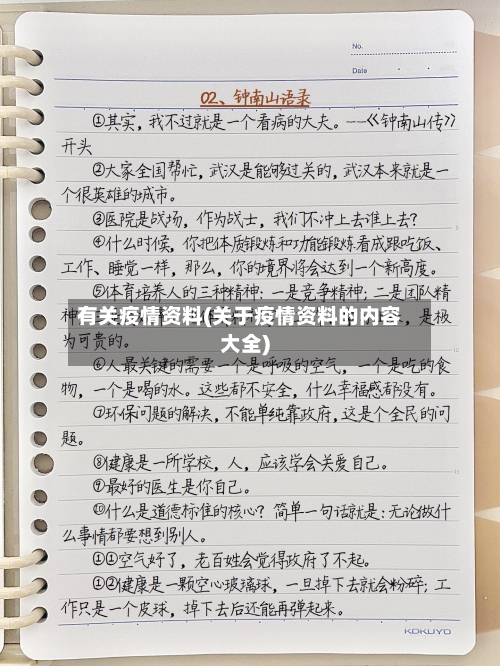 No.
Date
02、钟南山语录
①其实，我不过就是一个看病的大夫。——《钟南山传》
开头
②大家全国帮忙，武汉是能够过关的，武汉本来就是一
个很英雄的城市。
③医院是战场，作为战士，我们不冲上去谁上去？
④什么时候，你把体质锻炼和功能锻炼看成跟吃饭、
工作、睡觉一样，那么，你的境界将会达到一个新高度。
⑤体育培养人的三种精神：一是竞争精神；二是团队精
神
有关疫情资料(关于疫情资料的内容
是极
为可贵的。
大全)
⑥人最关键的需要一个是呼吸的空气，一个是吃的食
物，一个是喝的水。这些都不安全，什么幸福感都没有。
⑦环保问题的解决，不能单纯靠政府，这是个全民的问
题。
⑧健康是一所学校，人，应该学会关爱自己。
⑨最好的医生是你自己。
⑩什么是道德标准的核心？简单一句话就是：无论做什
么事情都要想到别人。
①①空气好了，老百姓会觉得政府了不起。
①②健康是一颗空心玻璃球，一旦掉下去就会粉碎；工
作只是一个皮球，掉下去后还能再弹起来。
KOKUYO